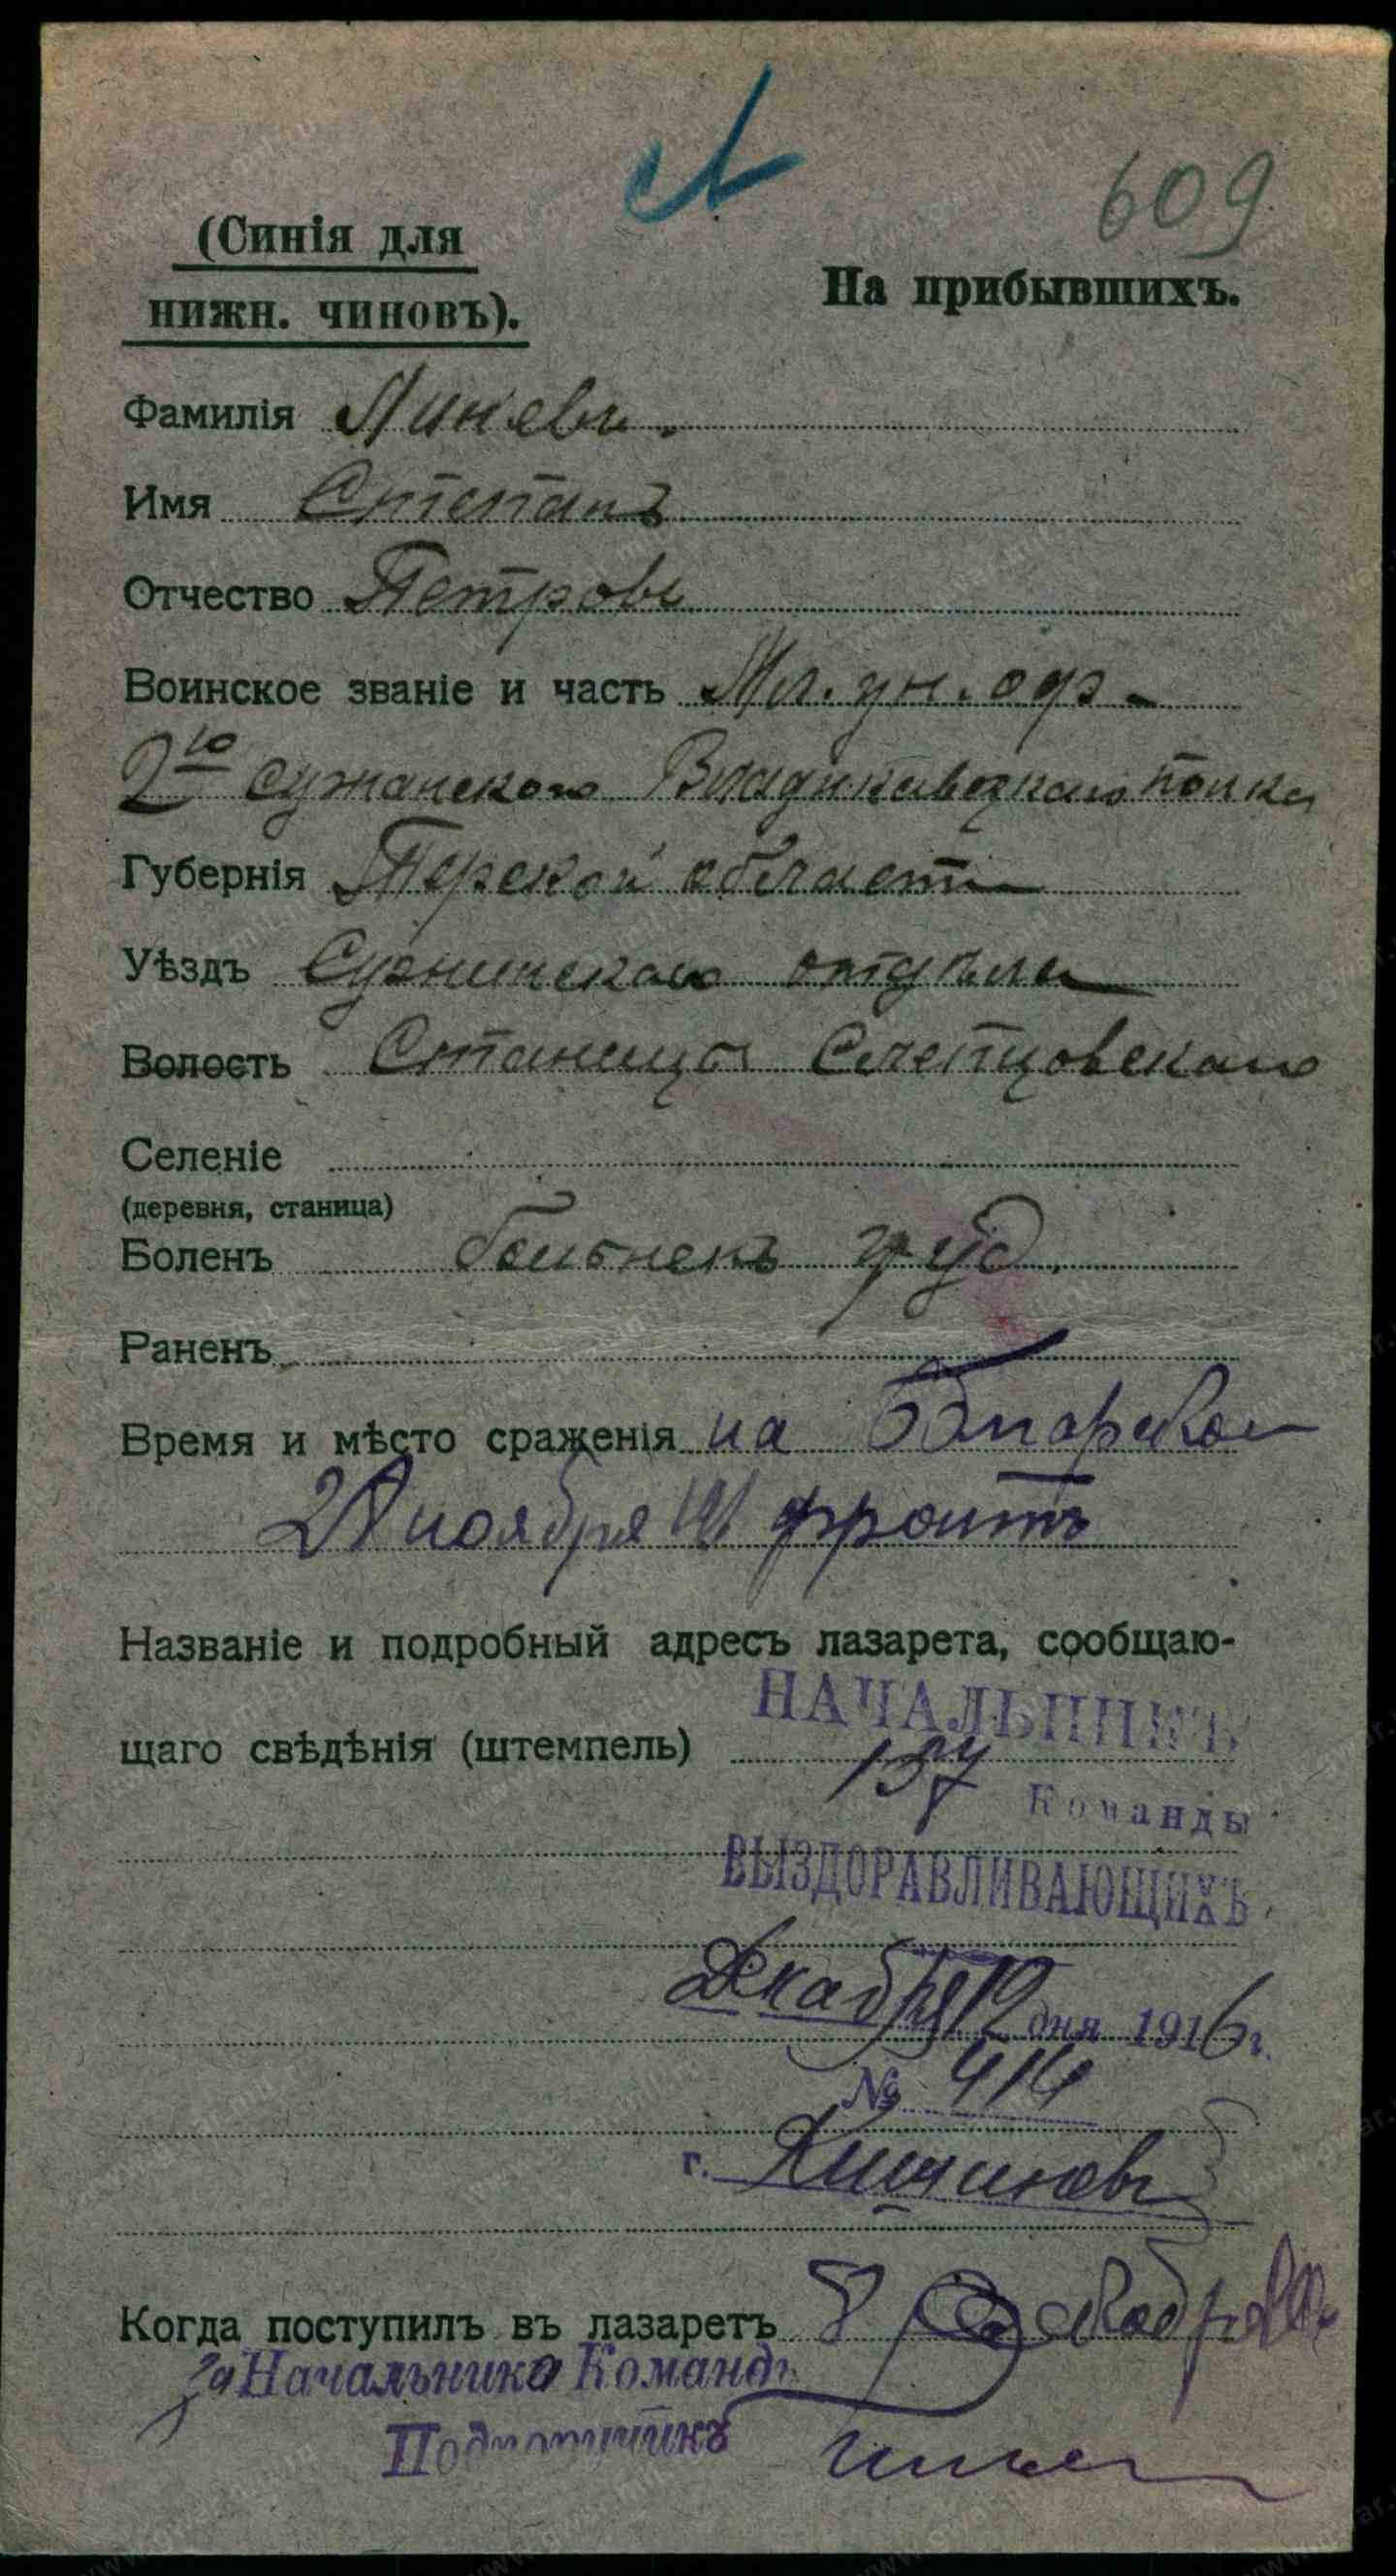 609
(Синія для
нижн. чиновъ).
На прибывшихъ.
Фамилія Линевъ.
Имя Степанъ
Отчество Петровъ
Воинское званіе и часть Мл. ун. оф.
2го Владикавказкаго полка
Губернія Терской области
Уѣздъ отдѣла
Волость Станица Слепцовскаго
Селеніе
(деревня, станица)
Боленъ
Раненъ
Время и мѣсто сраженія на
ноября фронтъ
Названіе и подробный адресъ лазарета, сообщаю-
щаго свѣдѣнія (штемпель)
НАЧАЛЬНИКЪ
157 Команды
ВЫЗДОРАВЛИВАЮЩИХЪ
Декабря 12 дня 1916 г.
№ 414
г. Кишиневъ
Когда поступилъ въ лазаретъ 8 Декабря
за Начальника Команды
Подпоручикъ